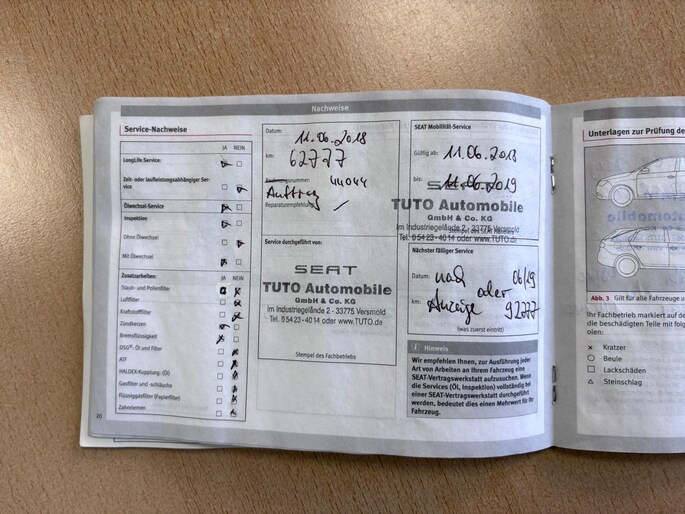 Nachweise
Service-Nachweise
JA NEIN
LongLife-Service:
Zeit- oder laufleistungsabhängiger Ser-
vice
Ölwechsel-Service
Inspektion
Ohne Ölwechsel
Mit Ölwechsel
Zusatzarbeiten: JA NEIN
Staub- und Pollenfilter
Luftfilter
Kraftstofffilter
Zündkerzen
Bremsflüssigkeit
DSG®- Öl und Filter
ATF
HALDEX-Kupplung: (Öl)
Gasfilter und -schläuche
Flüssiggasfilter (Papierfilter)
Zahnriemen
26
Datum: 11.06.2018
km: 62727
44044
Auftrag
Reparaturempfehlung
Service durchgeführt von:
SEAT
TUTO Automobile
GmbH & Co. KG
Im Industriegelände 2 - 33775 Versmold
Tel. 05423-4014 oder www.TUTO.de
Stempel des Fachbetriebs
SEAT Mobilität-Service
Gültig ab: 11.06.2018
bis: 11.06.2019
SEAT
TUTO Automobile
GmbH & Co. KG
Im Industriegelände 2 - 33775 Versmold
Tel. 05423-4014 oder www.TUTO.de
Nächster fälliger Service
Datum: nach 06/19
oder
km: Anzeige 92777
(was zuerst eintritt)
i Hinweis
Wir empfehlen Ihnen, zur Ausführung jeder
Art von Arbeiten an Ihrem Fahrzeug eine
SEAT-Vertragswerkstatt aufzusuchen. Wenn
die Services (Öl, Inspektion) vollständig bei
einer SEAT-Vertragswerkstatt durchgeführt
werden, bedeutet dies einen Mehrwert für Ihr
Fahrzeug.
Unterlagen zur Prüfung de
Abb. 3 Gilt für alle Fahrzeuge
Ihr Fachbetrieb markiert auf de
die beschädigten Teile mit folg
den.
Kratzer
Beule
Lackschäden
Steinschlag